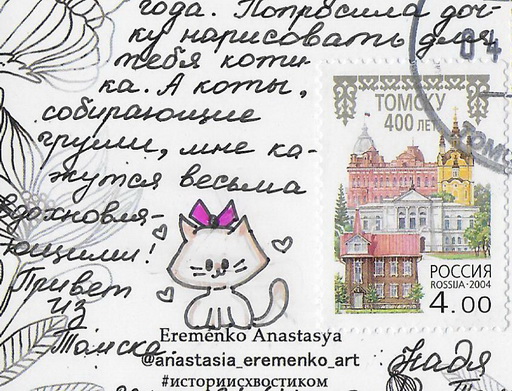 года. Попросила доч-
ку нарисовать для
тебя коти-
ка. А коты,
собирающие
груши, мне ка-
жутся весьма
вдохновля-
ющими!
Привет
из
Томска.
Надя
ТОМСКУ
400 ЛЕТ
РОССИЯ
ROSSIJA · 2004
4.00
04
ТОМС
Eremenko Anastasya
@anastasia_eremenko_art
#историисхвостиком